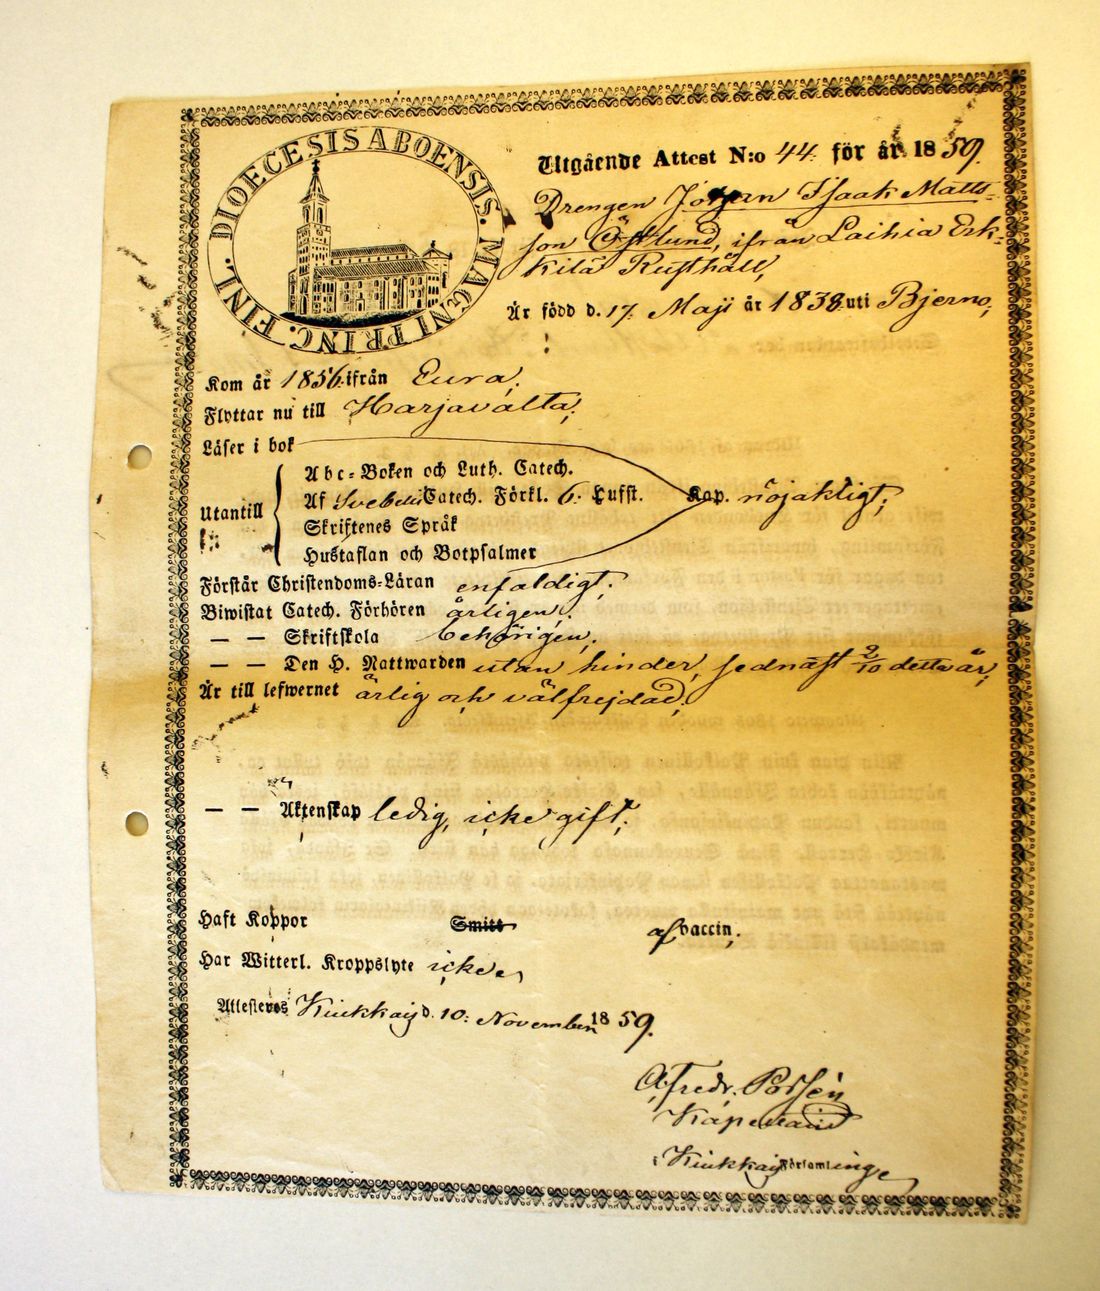 DIOECESIS ABOENSIS. MAGNI PRINC. FINL.
Utgående Attest N:o 44. för år 1859.
Drengen Johan Isaak Matts-
son Östlund, ifrån Laihia Erk-
kilä Rusthåll,
Är född d. 17. Maji år 1838. uti Bjerno,
Kom år 1856. ifrån Eura,
Flyttar nu till Harjavalta,
Läser i bok
Utantill
Abc-Boken och Luth. Catech.
Af Svebelii Catech. Förkl. 6. Lufft. Kap. nöjaktigt,
Skriftenes Språk
Hustaflan och Botpsalmer
Förstår Christendoms-Läran enfaldigt,
Biwistat Catech. Förhören årligen,
— — Skriftskola behörigen,
— — Den H. Nattwarden utan hinder, sednast 2/10 detta år,
Är till lefwernet ärlig och välfrejdad,
— — Äktenskap ledig, icke gift,
Haft Koppor Smitt af vaccin,
Har Witterl. Kroppslyte icke,
Attesteres Kiukkais d. 10: November 1859.
Alfredr. Porsén
Kapellan
i Kiukkais Församlinge